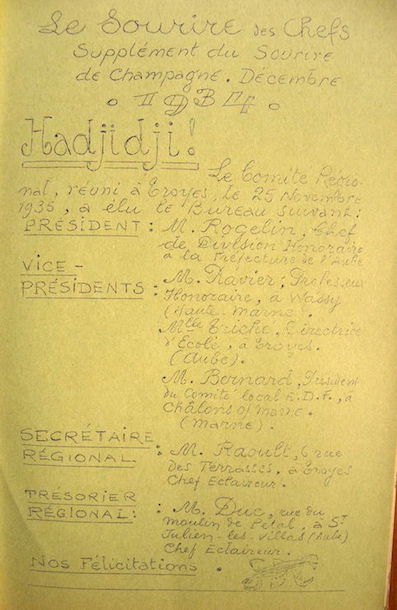 Le Sourire des Chefs
Supplément du Sourire
de Champagne. Décembre
. 1934 .
Hadjidji!
Le Comité Régio-
nal, réuni à Troyes, le 25 Novembre
1935, a élu le Bureau suivant:
PRÉSIDENT : M. Rogelin, Chef
de Division Honoraire
à la Préfecture de l'Aube
VICE-
PRÉSIDENTS : M. Ravier, Professeur
Honoraire, à Wassy
(Haute-Marne).
Mlle Triché, Directrice
d'École, à Troyes.
(Aube).
M. Bernard, Président
du Comité local E.D.F., à
Châlons s/ Marne.
(Marne).
SECRÉTAIRE
RÉGIONAL : M. Raoult, 6 rue
des Terrasses, à Troyes
Chef Eclaireur.
TRÉSORIER
RÉGIONAL: : M. Duc, rue du
moulin de Pétal, à St
Julien-les-Villas (Aube)
Chef Eclaireur.
Nos Félicitations .